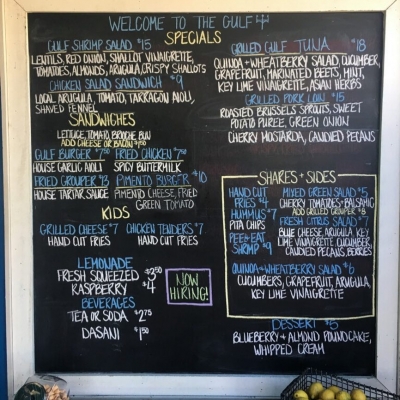 WELCOME TO THE GULF
SPECIALS
GULF SHRIMP SALAD $15
LENTILS, RED ONION, SHALLOT VINAIGRETTE,
TOMATOES, ALMONDS, ARUGULA, CRISPY SHALLOTS
CHICKEN SALAD SANDWICH $9
LOCAL ARUGULA, TOMATO, TARRAGON AIOLI,
SHAVED FENNEL
SANDWICHES
LETTUCE, TOMATO, BRIOCHE BUN
ADD CHEESE OR BACON
GULF BURGER $7.50 FRIED CHICKEN $7.50
HOUSE GARLIC AIOLI SPICY BUTTERMILK
FRIED GROUPER $13 PIMENTO BURGER $10
HOUSE TARTAR SAUCE PIMENTO CHEESE, FRIED
GREEN TOMATO
KIDS
GRILLED CHEESE $7 CHICKEN TENDERS $7
HAND CUT FRIES HAND CUT FRIES
LEMONADE
FRESH SQUEEZED $3.50
RASPBERRY $4
BEVERAGES
TEA OR SODA $2.75
DASANI $1.50
NOW
HIRING!
GRILLED GULF TUNA $18
QUINOA + WHEATBERRY SALAD, CUCUMBER,
GRAPEFRUIT, MARINATED BEETS, MINT,
KEY LIME VINAIGRETTE, ASIAN HERBS
GRILLED PORK LOIN $15
ROASTED BRUSSELS SPROUTS, SWEET
POTATO PUREE, GREEN ONION
CHERRY MOSTARDA, CANDIED PECANS
SHARES + SIDES
HAND CUT
FRIES $4
HUMMUS $7
PITA CHIPS
PEEL + EAT
SHRIMP $9
MIXED GREEN SALAD $5
CHERRY TOMATOES + BALSAMIC
ADD GRILLED GROUPER $8
FRESH CITRUS SALAD $7
BLUE CHEESE, ARUGULA, KEY
LIME VINAIGRETTE, CUCUMBER,
CANDIED PECANS, BERRIES
QUINOA + WHEATBERRY SALAD $6
CUCUMBERS, GRAPEFRUIT, ARUGULA,
KEY LIME VINAIGRETTE
DESSERT $6
BLUEBERRY + ALMOND POUNDCAKE,
WHIPPED CREAM